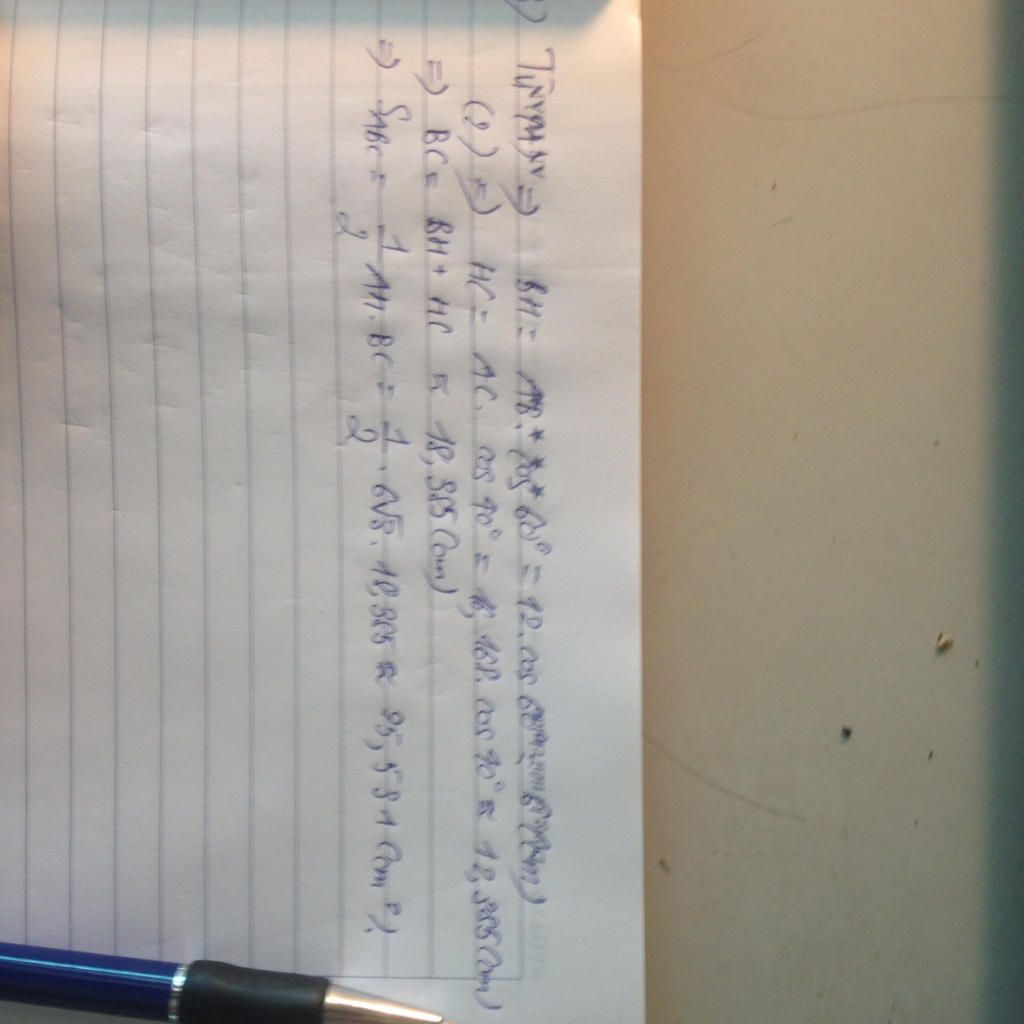 ⇒ BH = AB. cos 60° = 12. cos 60
(2) ⇒ HC = AC. cos 40° = 16,168. cos 40° ≈ 12,385 (cm)
⇒ BC = BH + HC ≈ 18,385 (cm)
⇒ S_ABC = 1/2 AH. BC = 1/2 . 6√3. 18,385 ≈ 95,531 (cm²).